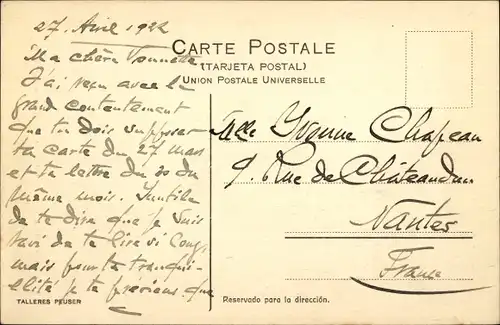 27 Avril 1922
Ma chère Yvonnette
J'ai reçu avec le
grand contentement
que tu dois supposer
ta carte du 27 mars
et ta lettre du 30 du
même mois. Inutile
de te dire que je suis
ravi de te lire si
mais pour ta tranqui-
llité je te préviens que
CARTE POSTALE
(TARJETA POSTAL)
UNION POSTALE UNIVERSELLE
Mlle Yvonne Chapeau
9. Rue de Châteaudun
Nantes
France
TALLERES PEUSER
Reservado para la dirección.